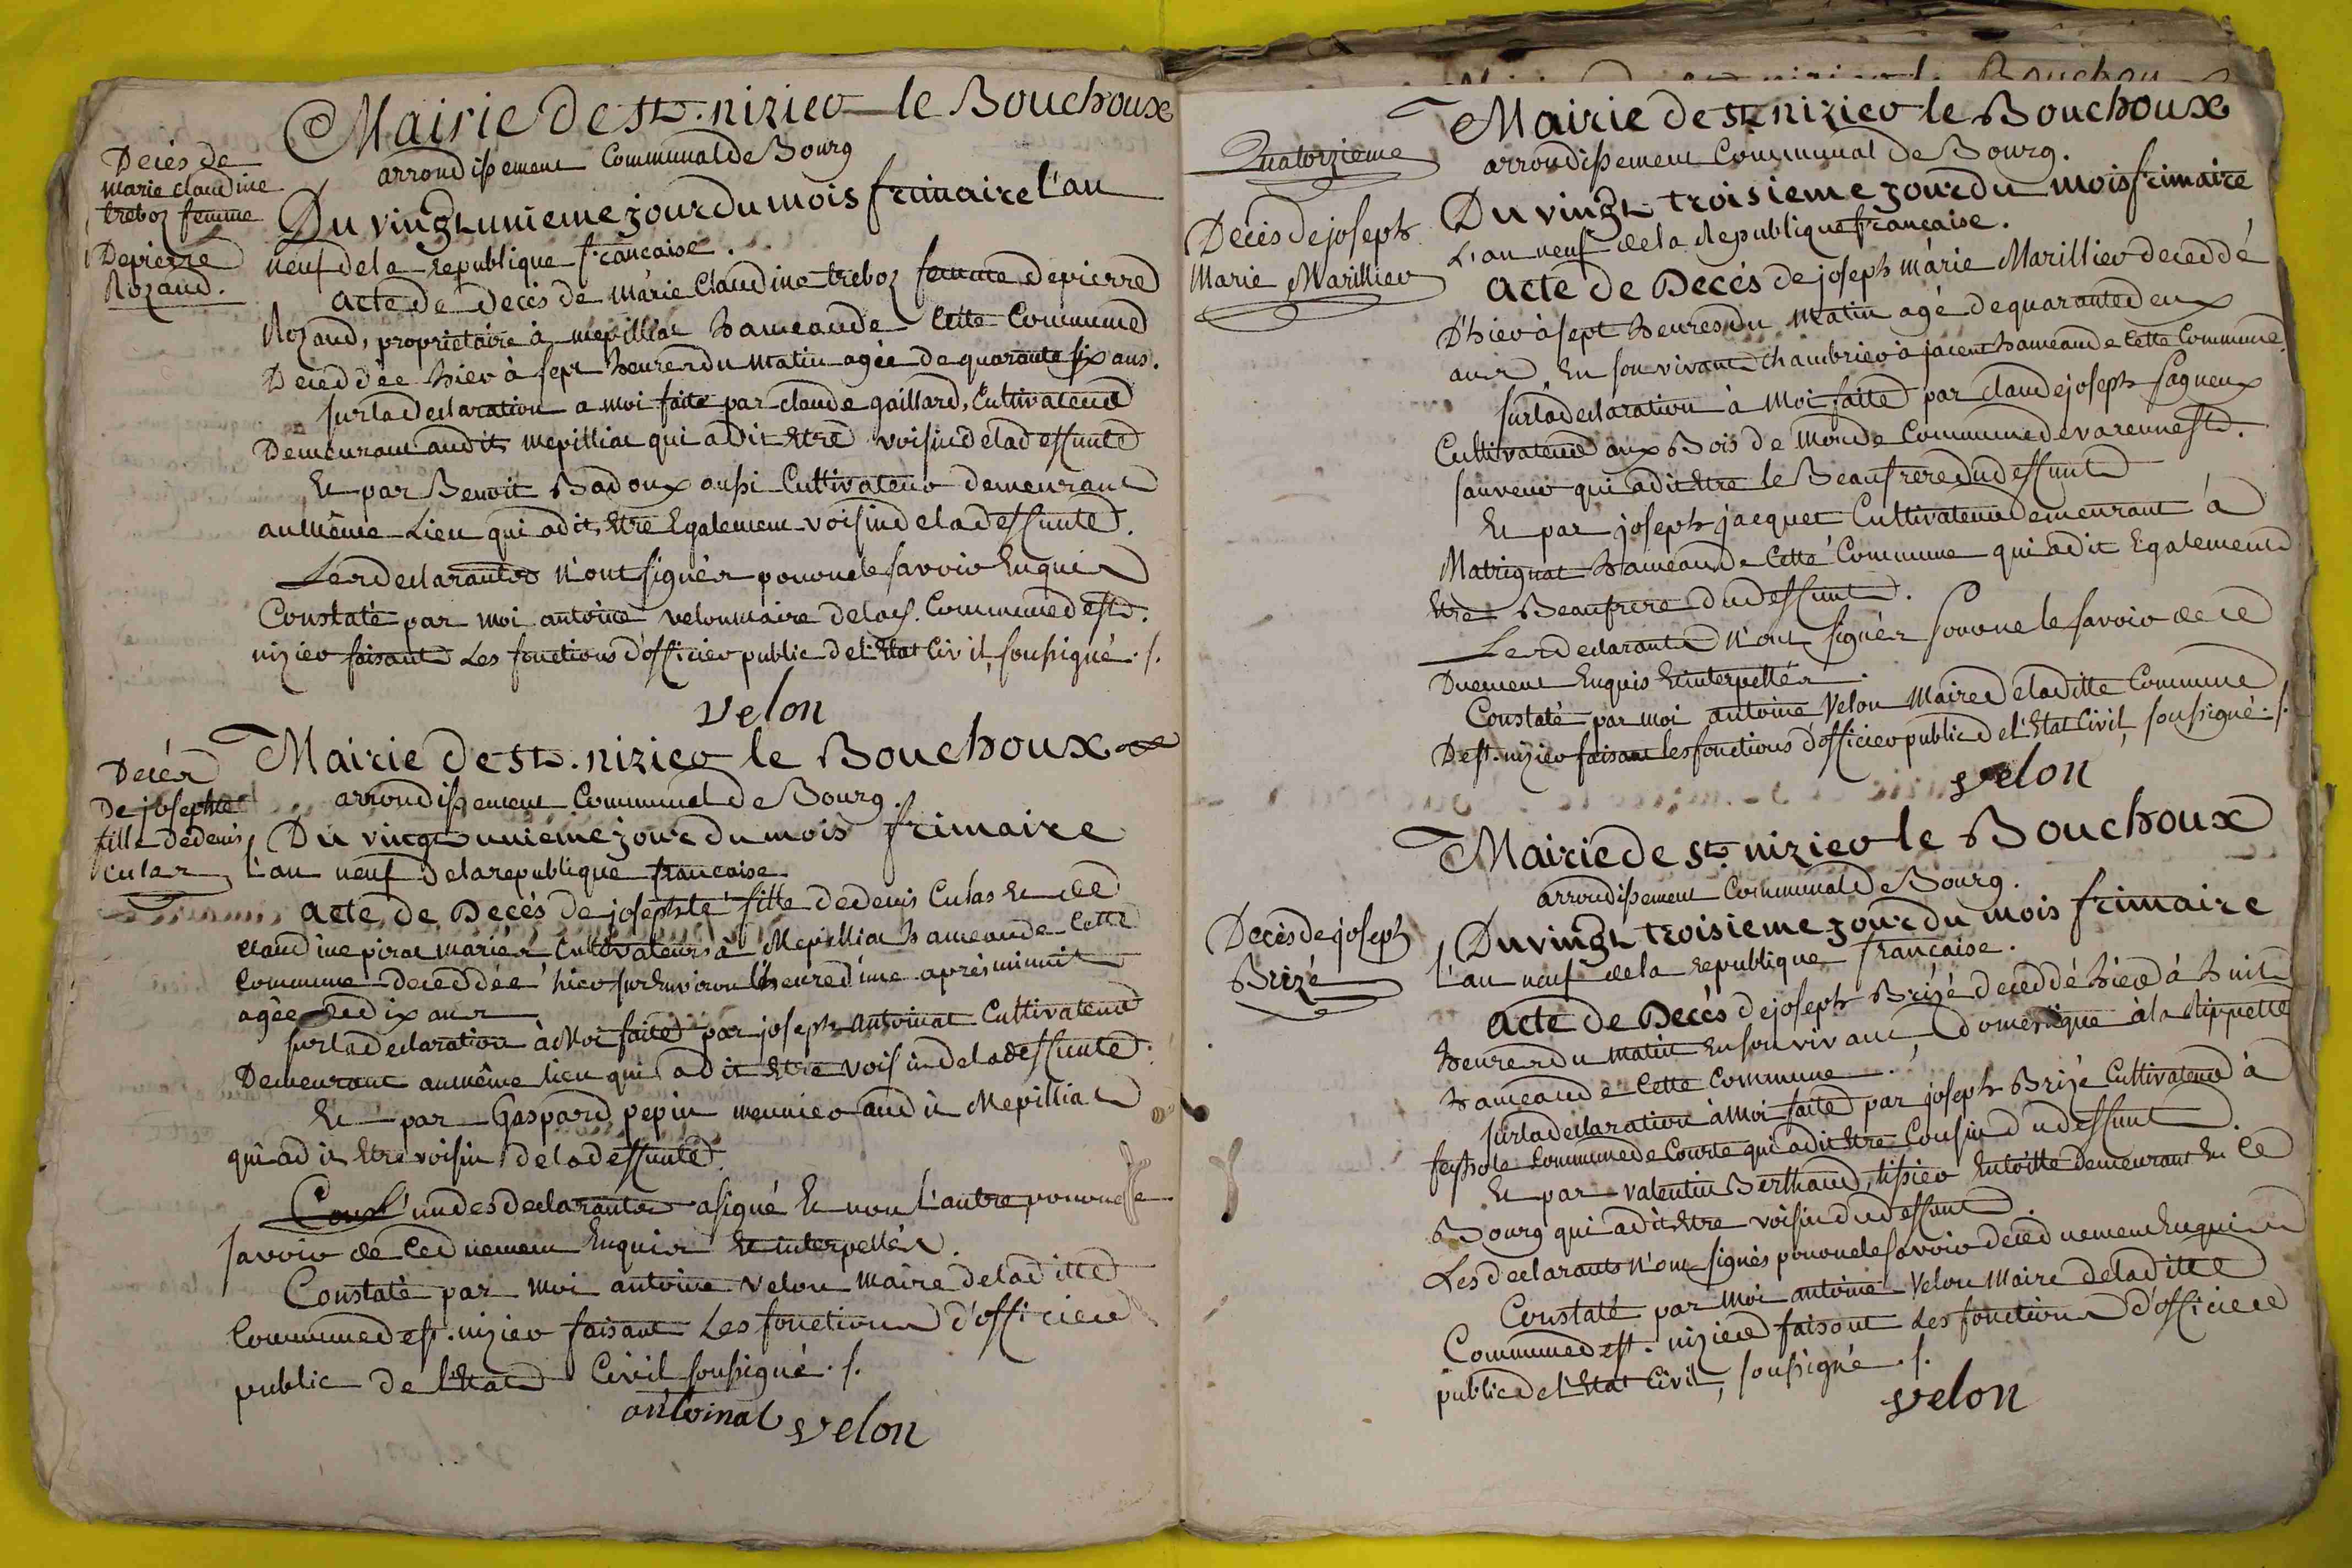 Mairie de st. nizier le Bouchoux
arrondissement Communal de Bourg
Decès de
marie claudine
treboz femme
De pierre
Rozand.
Du vingt unieme jour du mois frimaire l'an
neuf de la republique française.
acte de decès de marie Claudine treboz femme de pierre
Rozand, proprietaire à mepilliat hameau de Cette Commune
Deceddée hier à sept heures du matin agée de quarante six ans.
sur la declaration a moi faite par claude gaillard, Cultivateur
Demeurant audit mepilliat qui a dit Etre voisin de la deffunte
Et par Benoit Badoux aussi Cultivateur demeurant
au même Lieu qui a dit Etre Egalement voisin de la deffunte.
Les declarants n'ont signés pour ne le savoir Enquis
Constaté par moi antoine velon maire de la s. Commune de st.
nizier faisant Les fonctions d'officier public de l'Etat Civil, soussigné ./.
velon
Mairie de st. nizier le Bouchoux
arrondissement Communal de Bourg.
Decés
De josephte
fille de denis
culas
Du vingt unieme jour du mois frimaire
L'an neuf de la republique francaise
acte de Decès de josephte fille de denis Culas Et de
claudine pirat mariés Cultivateurs à Mepilliat hameau de Cette
Commune deceddée hier sur Environ l'heure d'une après minuit
agée de dix ans
sur la declaration à Moi faite par joseph antoinat Cultivateur
Demeurant au même lieu qui a dit Etre voisin de la deffunte.
Et par Gaspard pepin meunier audit Mepilliat
qui a dit Etre voisin de la deffunte.
L'un des declarants a signé Et non L'autre pour ne le
savoir de Ce duement Enquis Et interpellés.
Constaté par moi antoine velon maire de la ditte
Commune de st. nizier faisant Les fonctions d'officier
public de l'Etat Civil soussigné ./.
antoinat velon
Mairie de st. nizier le Bouchoux
Quatorzieme
arrondissement Communal de Bourg.
Du vingt troisieme jour du mois frimaire
L'an neuf de la Republique française.
Decès de joseph
Marie Marillier
acte de Decés de joseph marie Marillier deceddé
D'hier à sept heures du matin agé de quarante deux
ans En son vivant chambrier à jacent hameau de Cette Commune.
sur la declaration à Moi faite par claude joseph fagneux
Cultivateur aux Bois de Monde Commune de varenne st.
sauveur qui a dit Etre le Beaufrere du deffunt
Et par joseph jacquet Cultivateur demeurant à
Matrignat hameau de Cette Commune qui a dit Egalement
Etre Beaufrere du deffunt.
Les declarants n'ont signés pour ne le savoir de ce
Duement Enquis Et interpellés.
Constaté par moi antoine Velon Maire de la ditte Commune
De st. nizier faisant les fonctions d'officier public de l'Etat Civil, soussigné ./.
velon
Mairie de st. nizier le Bouchoux
arrondissement Communal de Bourg.
Du vingt troisieme jour du mois frimaire
L'an neuf de la republique francaise.
Decès de joseph
Brizé
acte de Decés de joseph Brizé deceddé hier à huit
heures du matin En son vivant domestique à la Rippette
hameau de Cette Commune.
sur la declaration à Moi faite par joseph Brizé Cultivateur à
feyssole Commune de Courte qui a dit Etre Cousin du deffunt.
Et par valentin Berthaud, tissier En toille demeurant En Ce
Bourg qui a dit Etre voisin du deffunt.
Les declarants n'ont signés pour ne le savoir de ce duement Enquis
Constaté par moi antoine Velon Maire de la ditte
Commune de st. nizier faisant Les fonctions d'officier
public de l'Etat Civil, soussigné ./.
velon